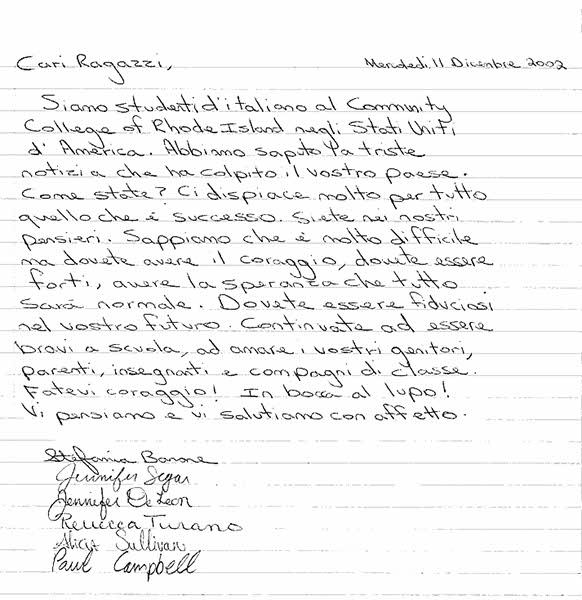 Cari Ragazzi,
Mercoledì, 11 Dicembre 2002
Siamo studenti d'italiano al Community
College of Rhode Island negli Stati Uniti
d'America. Abbiamo saputo la triste
notizia che ha colpito il vostro paese.
Come state? Ci dispiace molto per tutto
quello che è successo. Siete nei nostri
pensieri. Sappiamo che è molto difficile
ma dovete avere il coraggio, dovete essere
forti, avere la speranza che tutto
sarà normale. Dovete essere fiduciosi
nel vostro futuro. Continuate ad essere
bravi a scuola, ad amare i vostri genitori,
parenti, insegnanti e compagni di classe.
Fatevi coraggio! In bocca al lupo!
Vi pensiamo e vi salutiamo con affetto.
Stefania Barone
Jennifer Segar
Jennifer De Leon
Rebecca Turano
Alicia Sullivan
Paul Campbell